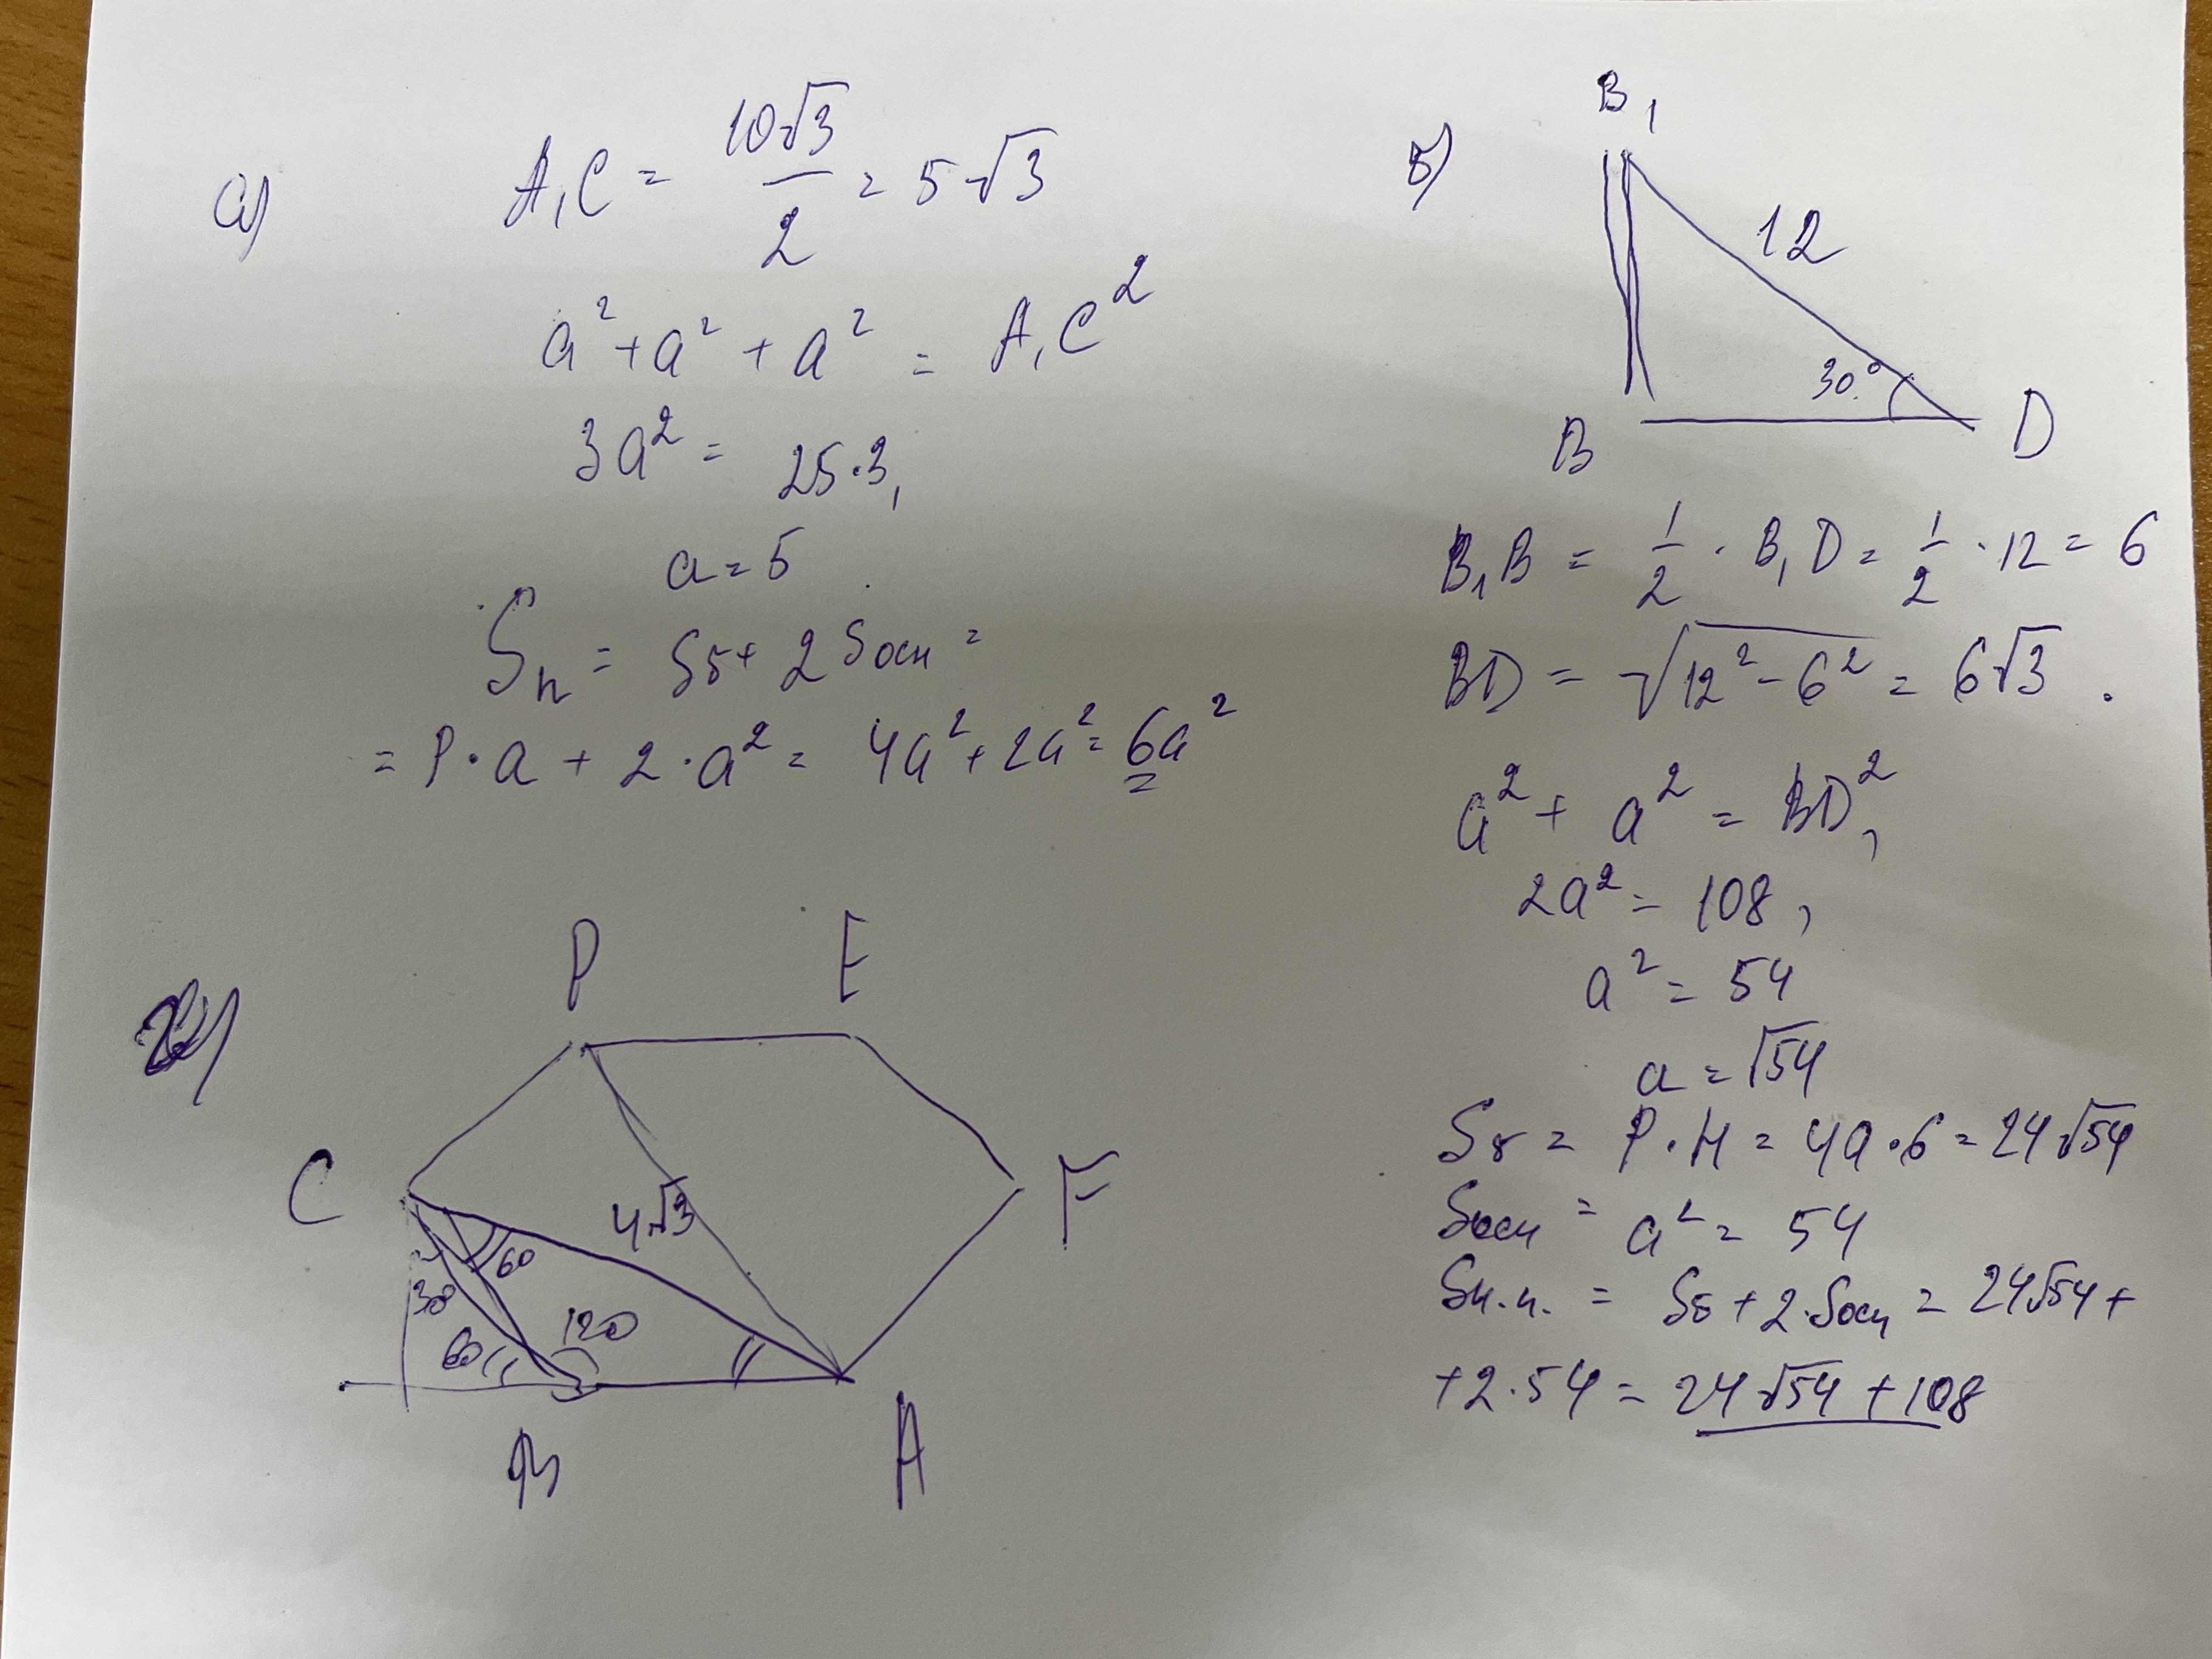 а) A₁C = 10√3 / 2 = 5√3
a² + a² + a² = A₁C²
3a² = 25·3,
a = 5
Sп = Sб + 2Sосн =
= P·a + 2·a² = 4a² + 2a² = 6a²
б)
B₁
12
30°
B
D
B₁B = 1/2 · B₁D = 1/2 · 12 = 6
BD = √12² - 6² = 6√3.
a² + a² = BD²,
2a² = 108,
a² = 54
a = √54
Sб = P·H = 4a·6 = 24√54
Sосн = a² = 54
Sп.п. = Sб + 2·Sосн = 24√54 +
+2·54 = 24√54 + 108
P
E
C
F
4√3
60
30
120
60
B
A